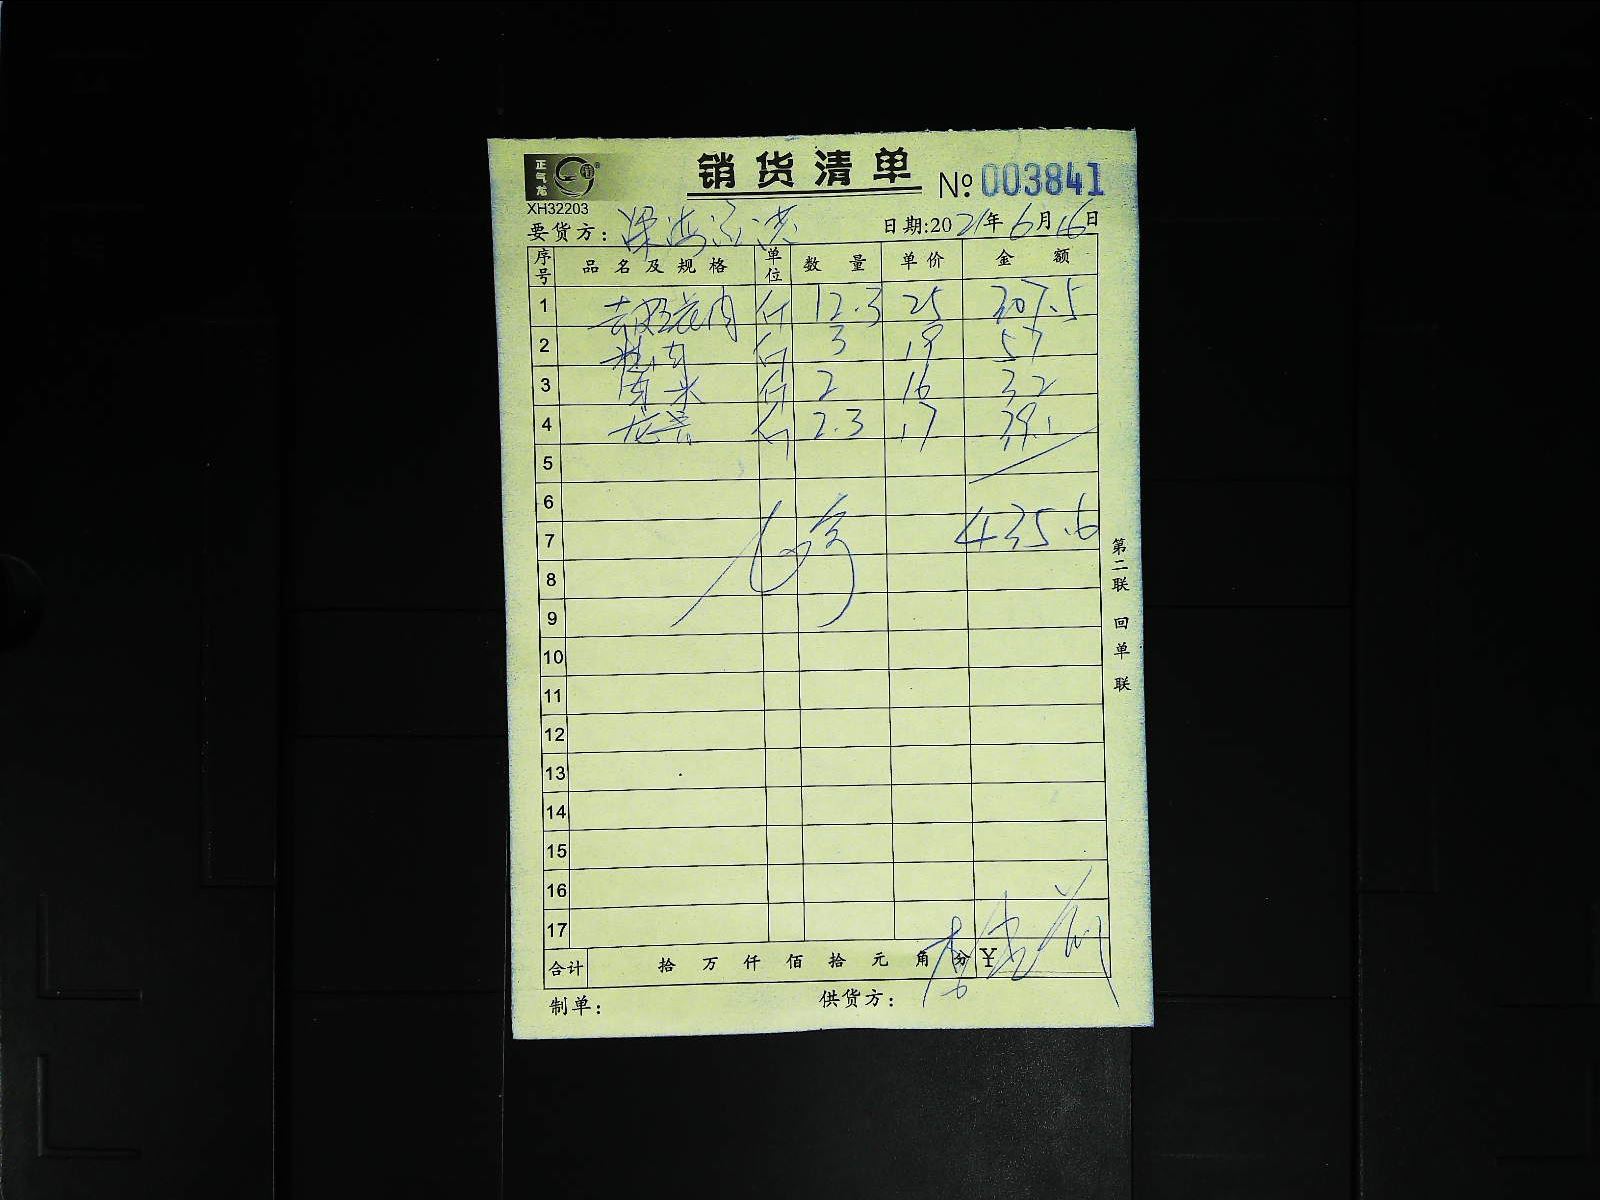 正气龙
销货清单
№ 003841
XH32203
要货方: 深海
日期:2021年6月16日
序号 品名及规格 单位 数量 单价 金额
1 去皮五花肉 斤 12.3 25 307.5
2 精肉 斤 3 19 57
3 肉米 斤 2 16 32
4 龙骨 斤 2.3 17 39.1
5
6
7 435.6
8
9
10
11
12
13
14
15
16
17
合计 拾 万 仟 佰 拾 元 角 分 ¥
制单: 供货方:
第二联 回单联